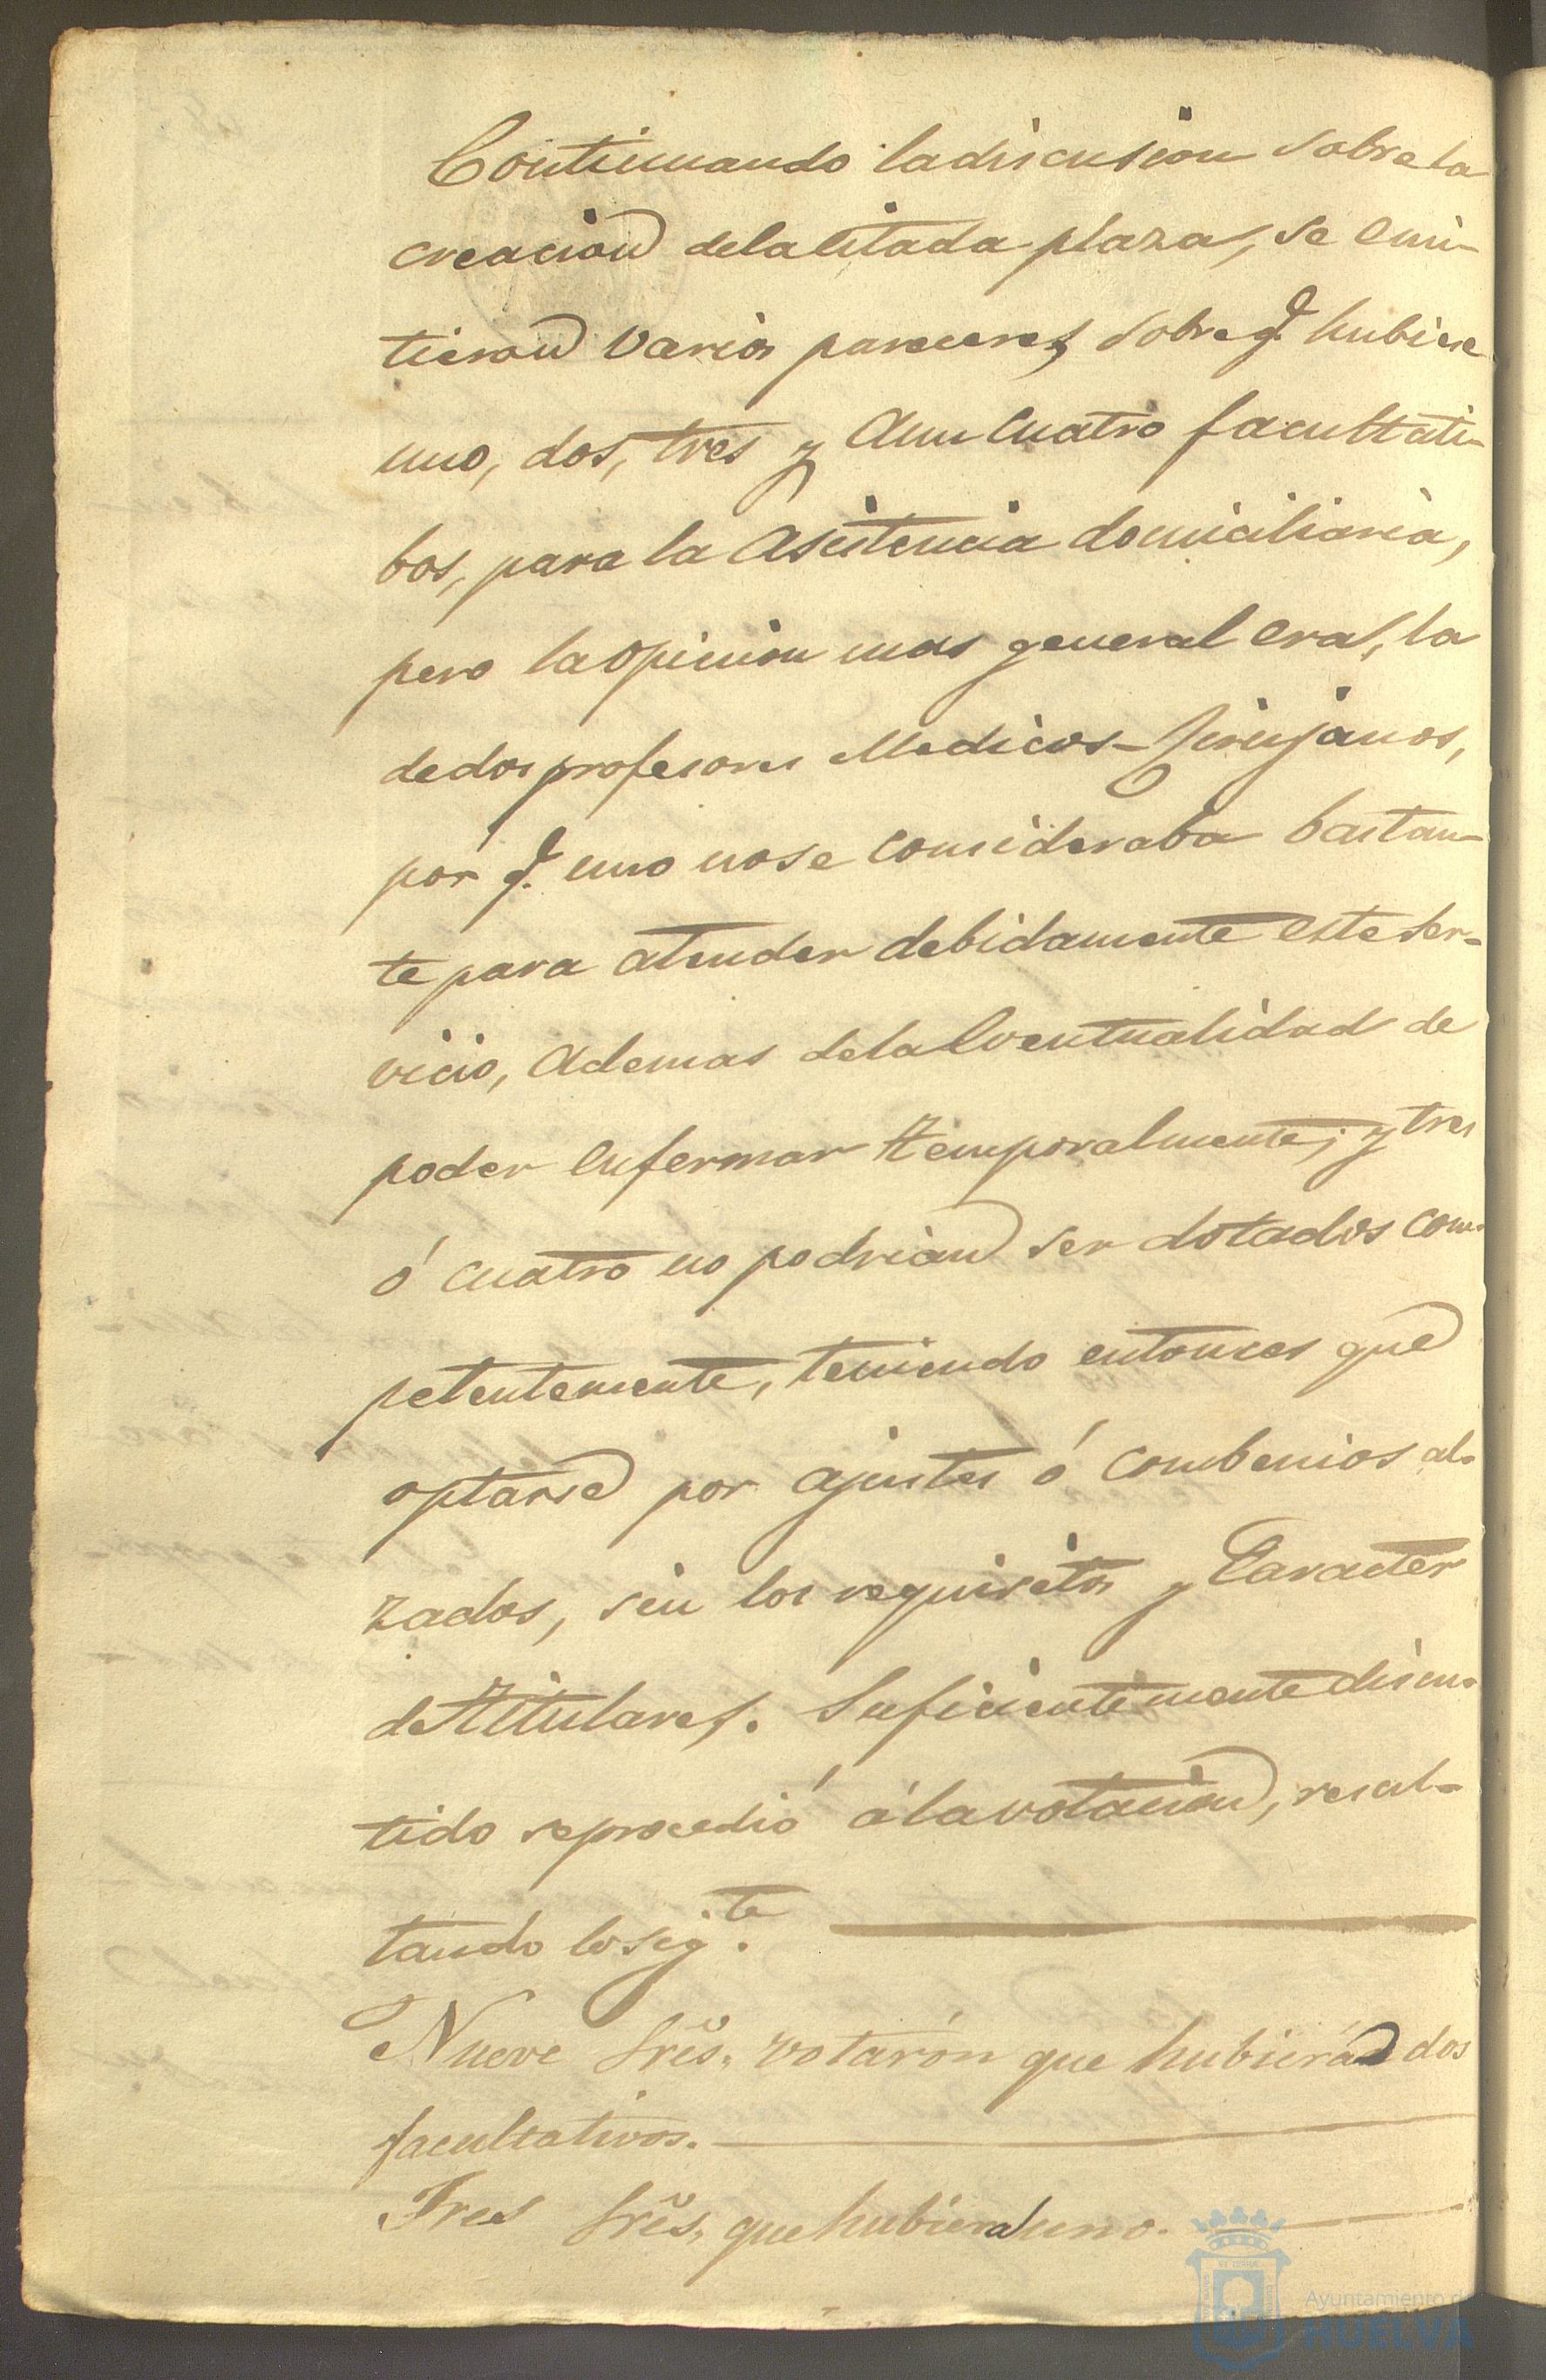 Continuando la discusion sobre la
creacion de la citada plaza, se emi-
tieron varios pareceres, sobre q.e hubiese
uno, dos, tres y aun cuatro facultati-
bos, para la asistencia domiciliaria,
pero la opinion mas general era, la
de dos profesores Medicos-Cirujanos,
por q.e uno no se consideraba bastan-
te para atender debidamente este ser-
vicio, ademas de la eventualidad de
poder enfermar temporalmente; y tres
ó cuatro no podrian ser dotados com-
petentemente, teniendo entonces que
optarse por ajustes ó combenios al-
zados, sin los requisitos y caracter
de titulares. Suficientemente discu-
tido se procedió á la votacion, resul-
tando lo sig.te
Nueve Sres. votarón que hubierán dos
facultativos.
Tres Sres. que hubiera uno.
Ayuntamiento de
HUELVA